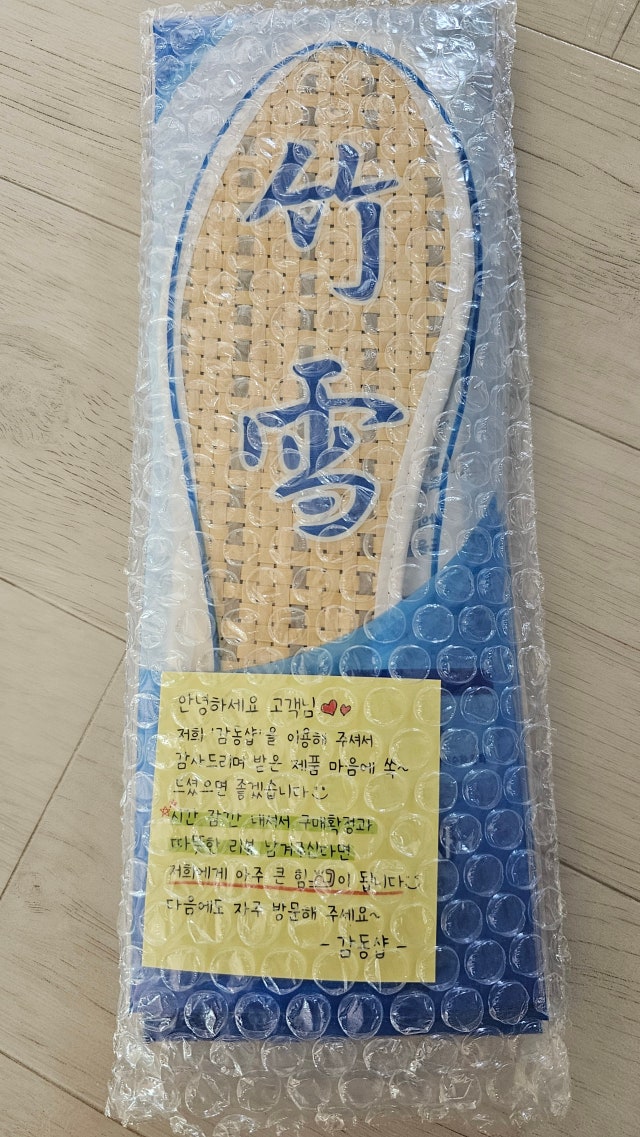 竹
雪
안녕하세요 고객님
저희 '감동샵'을 이용해 주셔서
감사드리며 받은 제품 마음에 쏙~
드셨으면 좋겠습니다
시간 잠깐 내셔서 구매확정과
따뜻한 리뷰 남겨주신다면
저희에게 아주 큰 힘이 됩니다
다음에도 자주 방문해 주세요~
- 감동샵 -